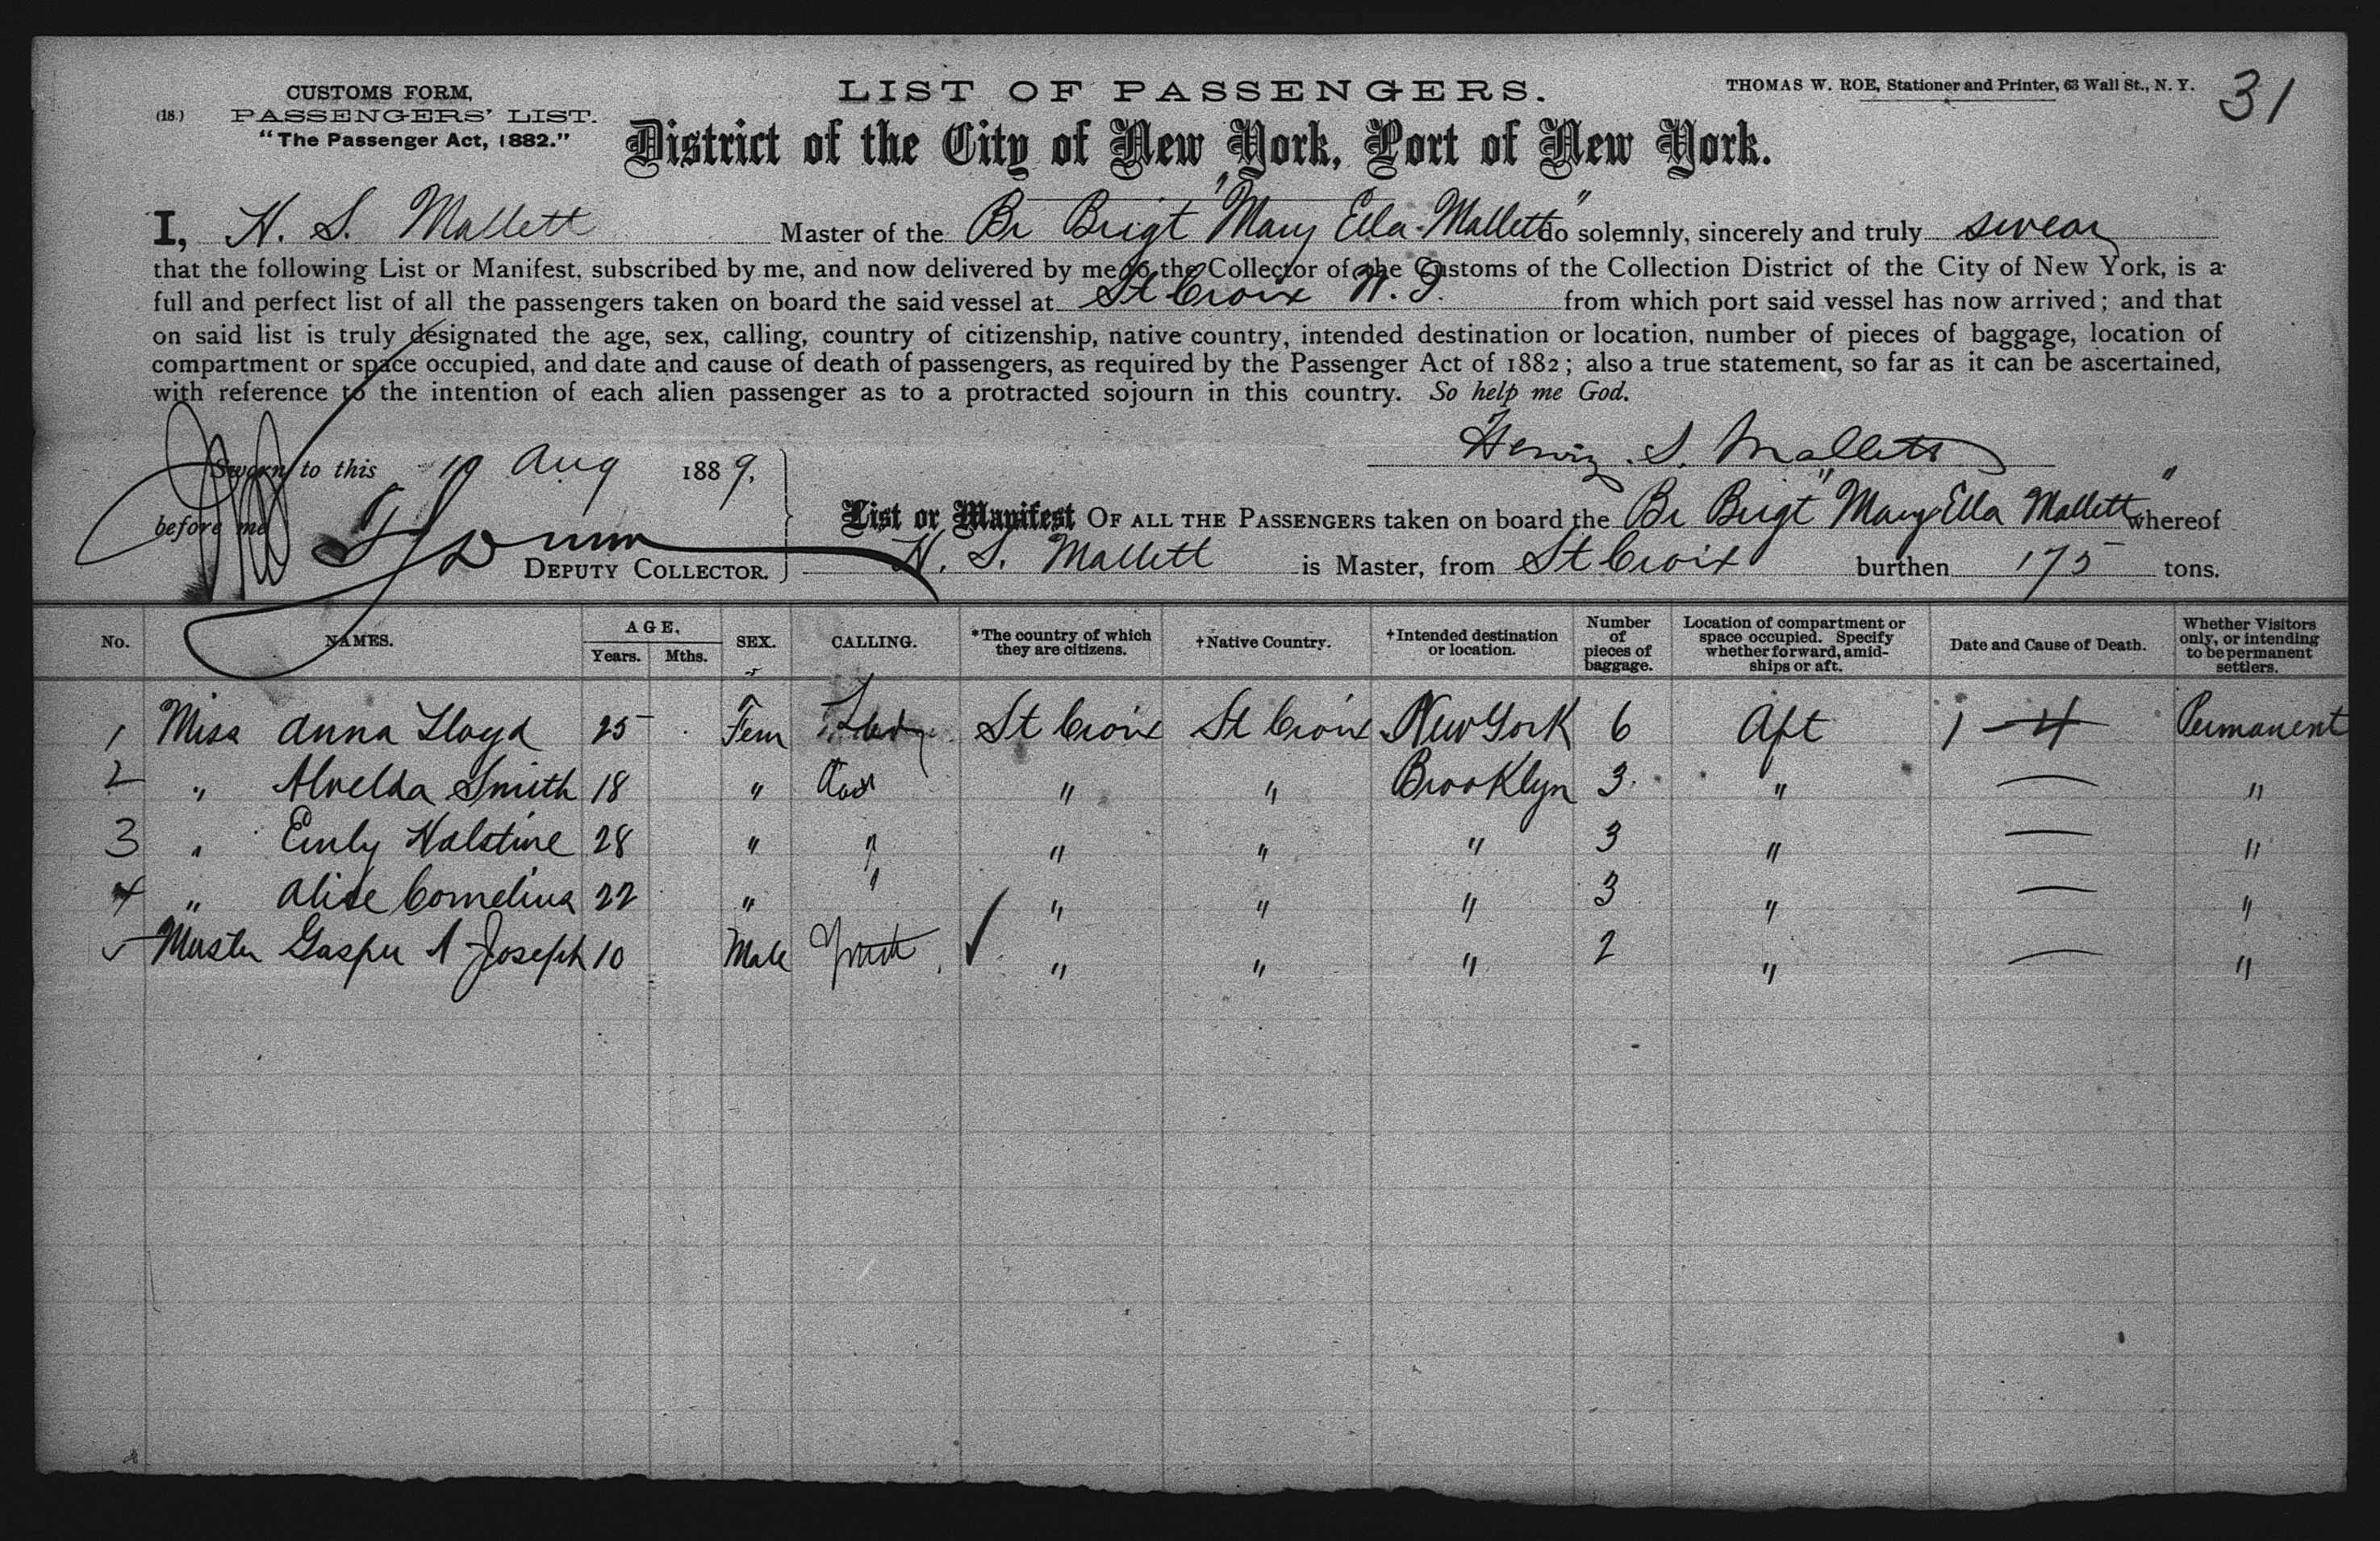 CUSTOMS FORM,
(18.) PASSENGERS' LIST.
"The Passenger Act, 1882."
LIST OF PASSENGERS.
THOMAS W. ROE, Stationer and Printer, 63 Wall St., N. Y.
31
District of the City of New York, Port of New York.
I, H. S. Mallett Master of the Br Brigt "Mary Ella Mallett" do solemnly, sincerely and truly swear
that the following List or Manifest, subscribed by me, and now delivered by me to the Collector of the Customs of the Collection District of the City of New York, is a
full and perfect list of all the passengers taken on board the said vessel at St Croix W. I. from which port said vessel has now arrived; and that
on said list is truly designated the age, sex, calling, country of citizenship, native country, intended destination or location, number of pieces of baggage, location of
compartment or space occupied, and date and cause of death of passengers, as required by the Passenger Act of 1882; also a true statement, so far as it can be ascertained,
with reference to the intention of each alien passenger as to a protracted sojourn in this country. So help me God.
Henry S. Mallett
Sworn to this 19 Aug 1889,
before me
DEPUTY COLLECTOR.
List or Manifest OF ALL THE PASSENGERS taken on board the Br Brigt "Mary Ella Mallett" whereof
H. S. Mallett is Master, from St Croix burthen 175 tons.
No. NAMES. AGE, Years. Mths. SEX. CALLING. *The country of which they are citizens. †Native Country. †Intended destination or location. Number of pieces of baggage. Location of compartment or space occupied. Specify whether forward, amidships or aft. Date and Cause of Death. Whether Visitors only, or intending to be permanent settlers.
1 Miss Anna Lloyd 25 Fem Lady St Croix St Croix New York 6 Aft 1 - 4 Permanent
2 " Alvelda Smith 18 " " " Brooklyn 3 " — "
3 " Emly Halstine 28 " " " " " 3 " — "
4 " Alice Cornelius 22 " " " " " 3 " — "
5 Master Gasper A Joseph 10 Male " " " 2 " — "